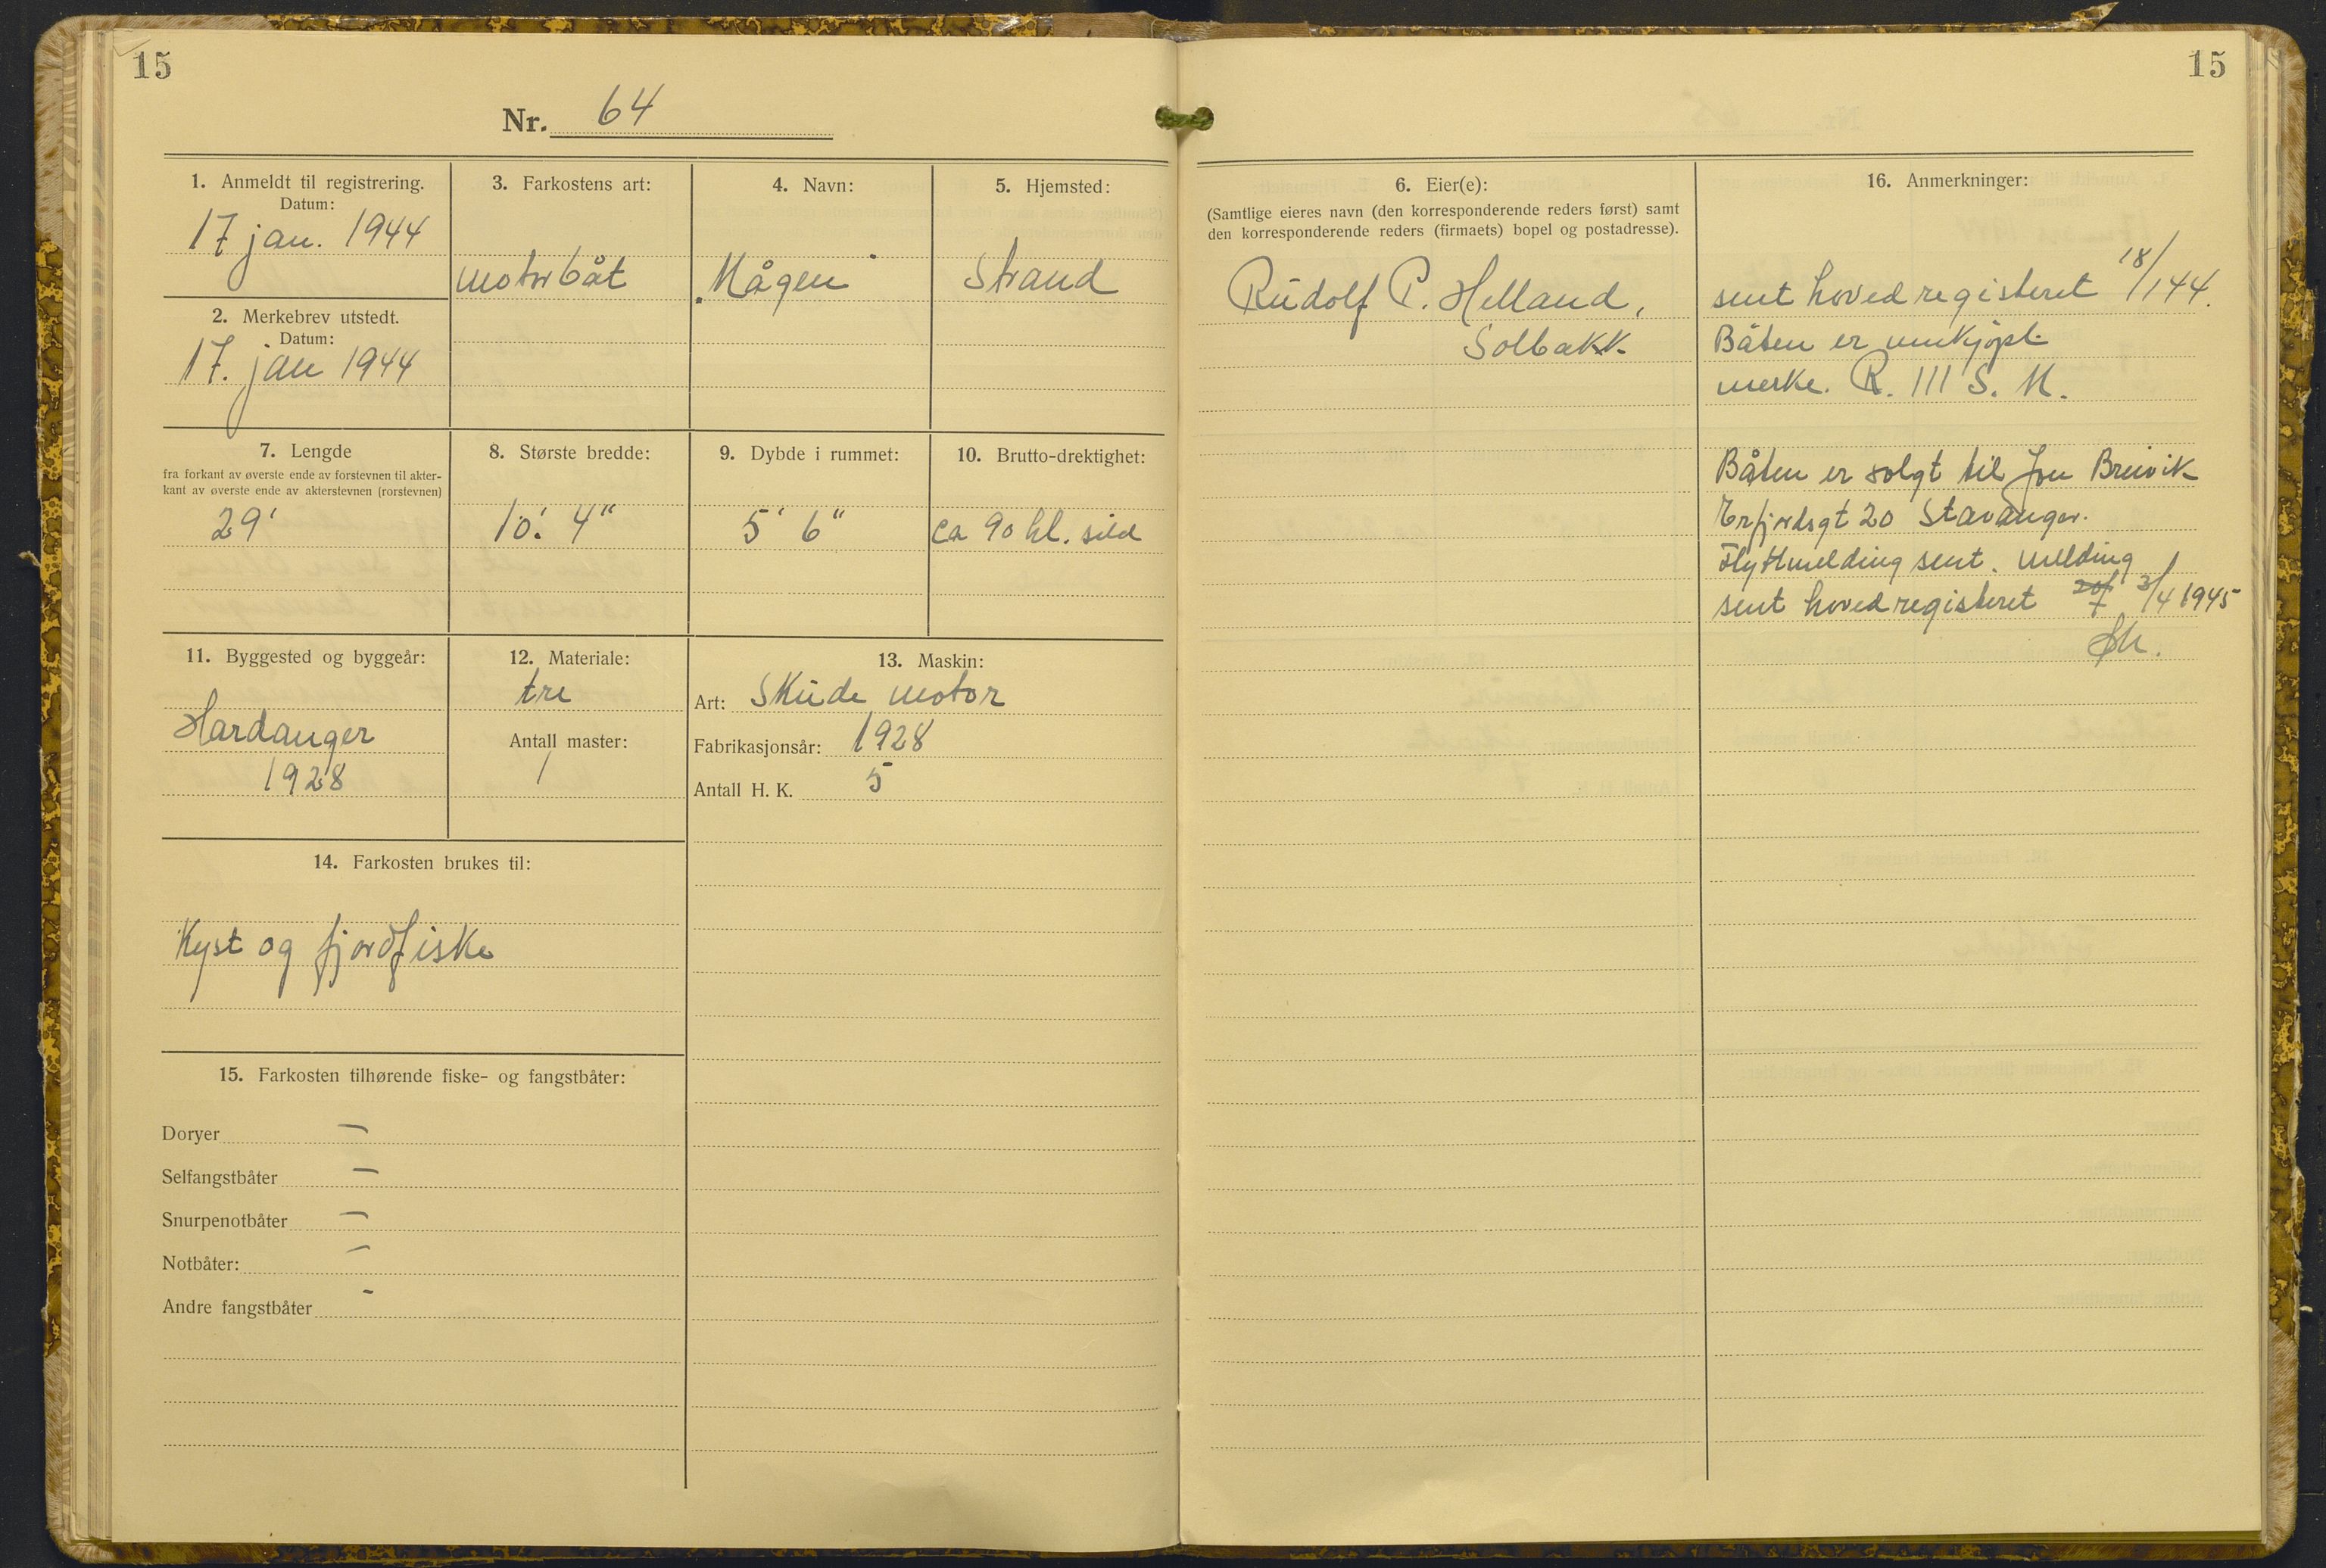 15
Nr. 64
1. Anmeldt til registrering.
Datum:
17 jan. 1944
2. Merkebrev utstedt.
Datum:
17. jan 1944
3. Farkostens art:
motorbåt
4. Navn:
„Mågen"
5. Hjemsted:
Strand
7. Lengde
fra forkant av øverste ende av forstevnen til akter-
kant av øverste ende av akterstevnen (rorstevnen)
29'
8. Største bredde:
10'. 4"
9. Dybde i rummet:
5' 6"
10. Brutto-drektighet:
ca 90 hl. sild
11. Byggested og byggeår:
Hardanger
1928
12. Materiale:
tre
Antall master:
1
13. Maskin:
Art: Skude motor
Fabrikasjonsår: 1928
Antall H. K. 5
14. Farkosten brukes til:
Kyst og fjordfiske
15. Farkosten tilhørende fiske- og fangstbåter:
Doryer —
Selfangstbåter —
Snurpenotbåter —
Notbåter: —
Andre fangstbåter -
15
6. Eier(e):
(Samtlige eieres navn (den korresponderende reders først) samt
den korresponderende reders (firmaets) bopel og postadresse).
Rudolf P. Helland,
Solbakk.
16. Anmerkninger:
sent hovedregisteret 18/1 44.
Båten er innkjøpt
merke. R. 111 S. M.
Båten er solgt til Jon Breivik
Erfjordsgt 20 Stavanger.
Flyttmelding sent. melding
sent hovedregisteret 3/4 1945